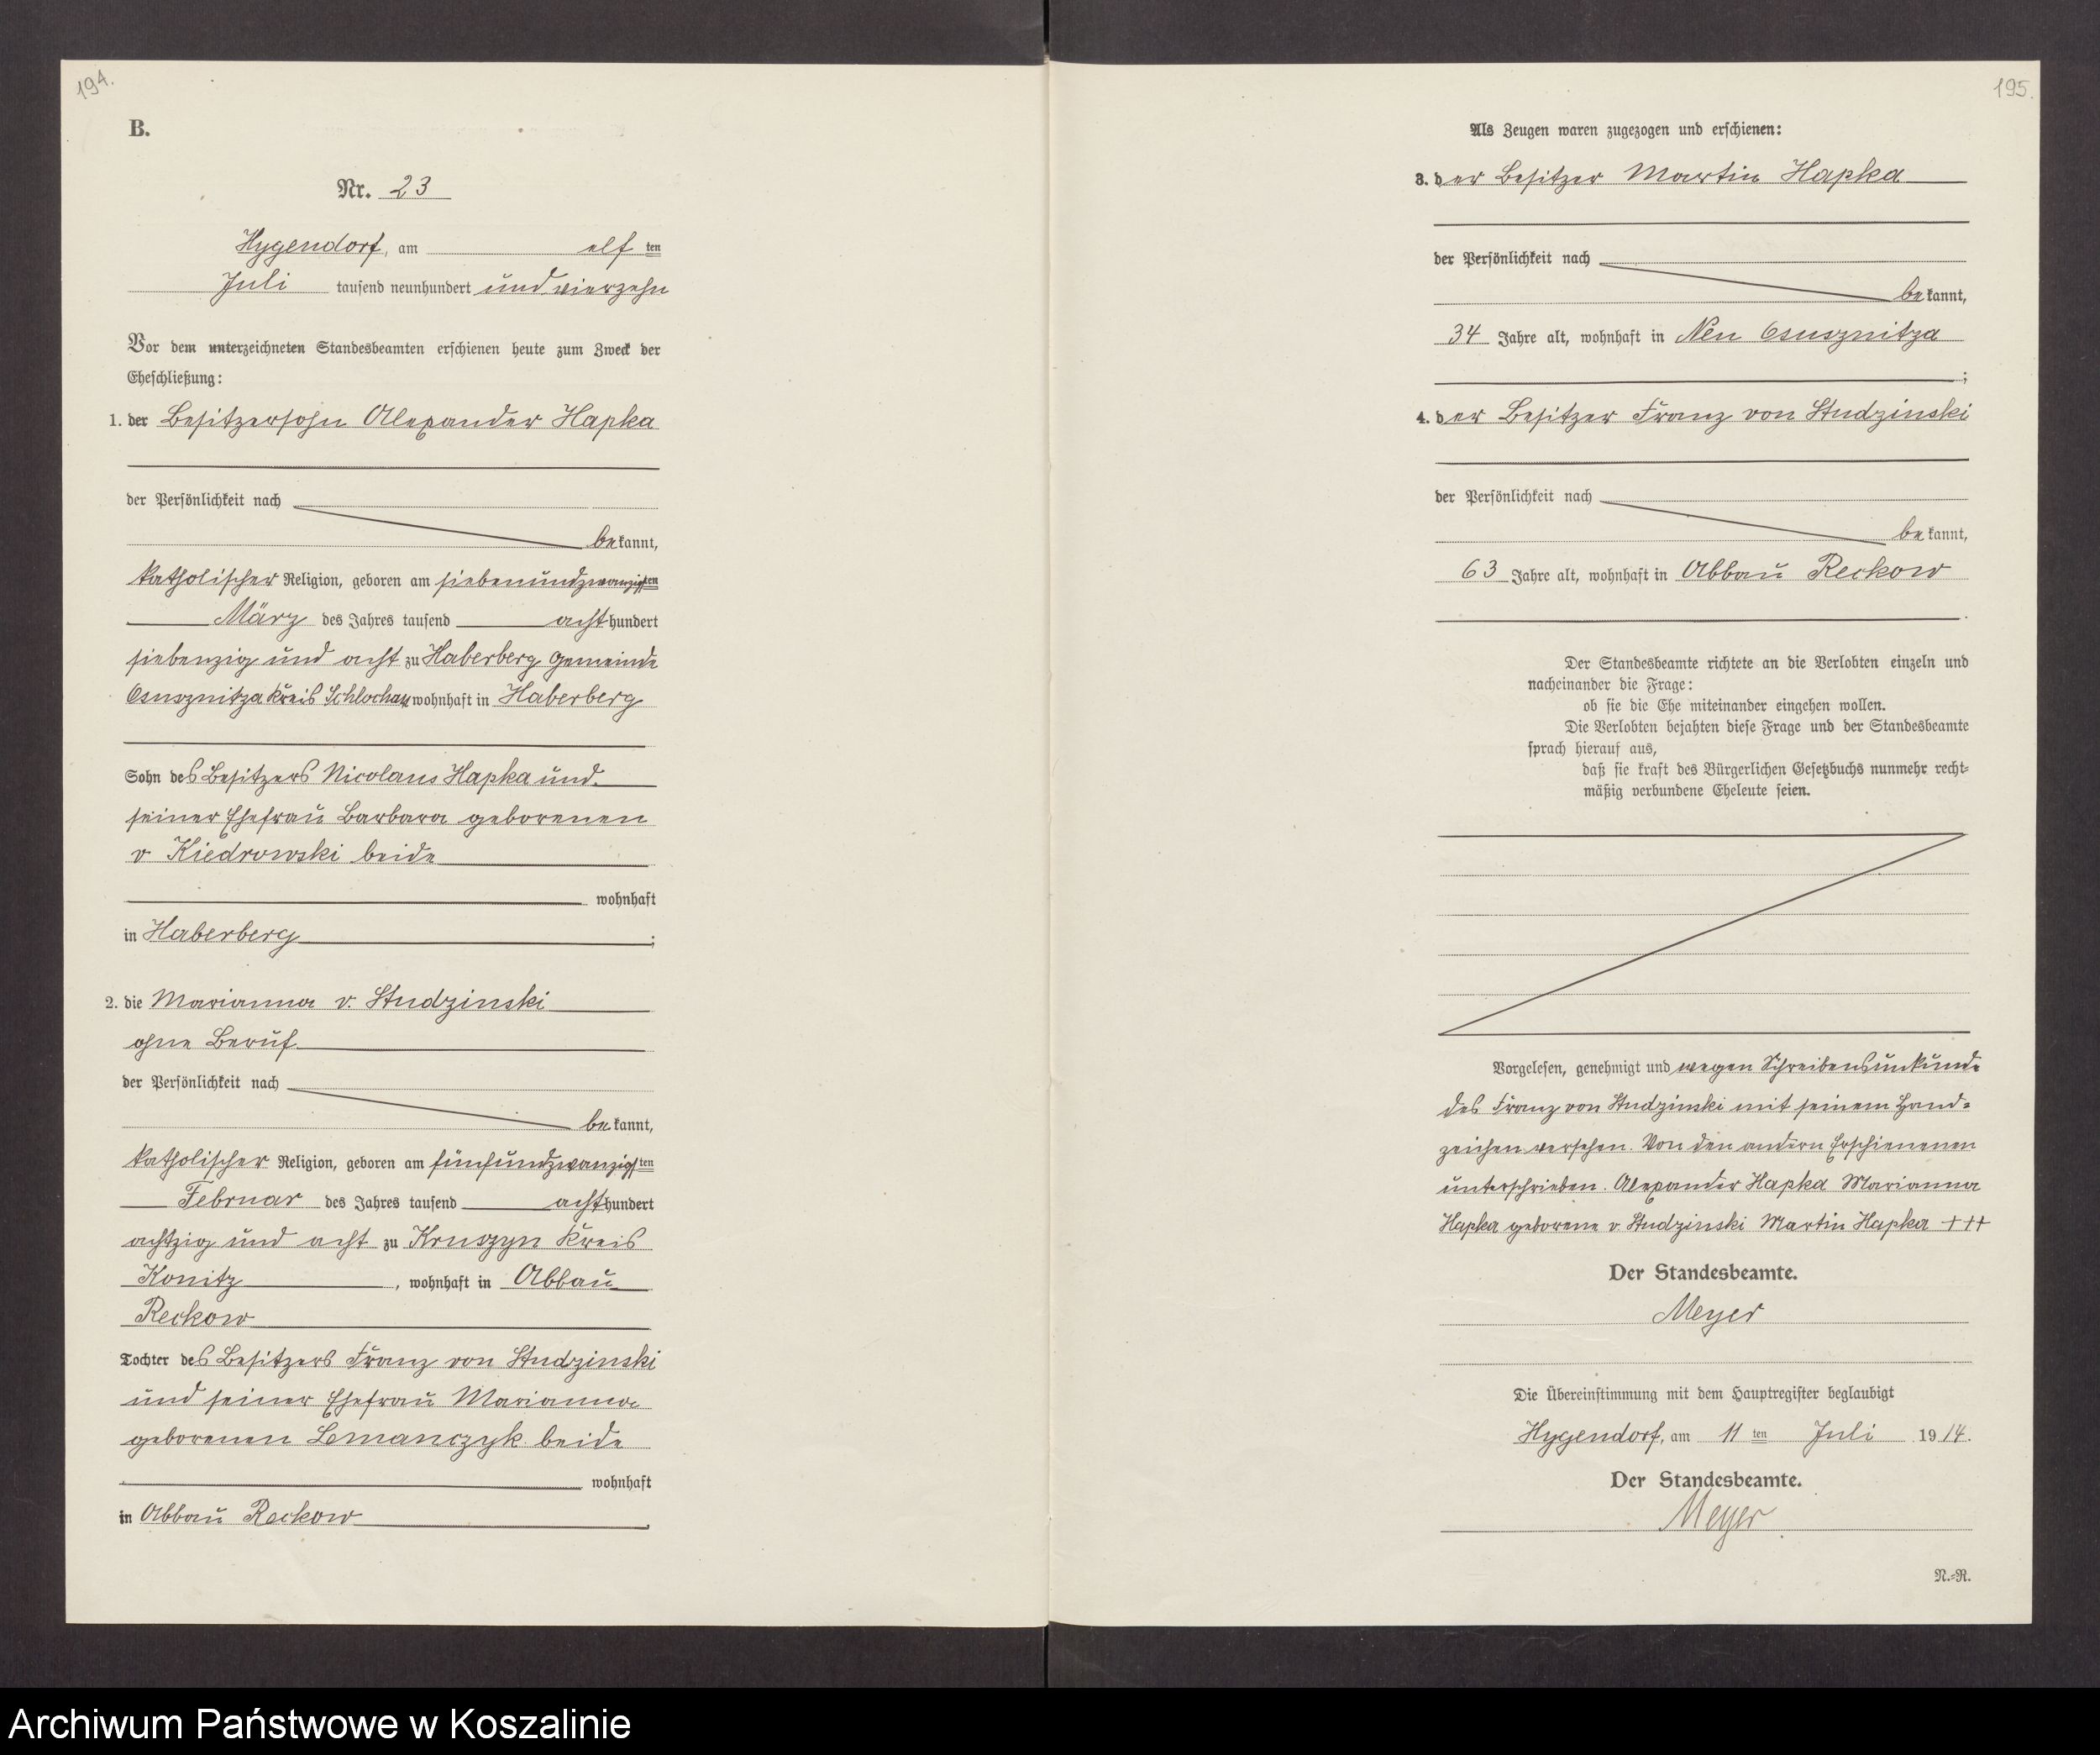 194.
B.
Nr. 23
Hygendorf, am elf ten
Juli tausend neunhundert und vierzehn
Vor dem unterzeichneten Standesbeamten erschienen heute zum Zweck der
Eheschließung:
1. der Besitzersohn Alexander Hapka
der Persönlichkeit nach
bekannt,
katholischer Religion, geboren am siebenundzwanzigsten
März des Jahres tausend achthundert
siebenzig und acht zu Haberberg Gemeinde
Osusznitza Kreis Schlochau, wohnhaft in Haberberg
Sohn des Besitzers Nicolaus Hapka und
seiner Ehefrau Barbara geborenen
v Kiedrowski beide
wohnhaft
in Haberberg;
2. die Marianna v. Studzinski
ohne Beruf
der Persönlichkeit nach
bekannt,
katholischer Religion, geboren am fünfundzwanzigsten
Februar des Jahres tausend achthundert
achtzig und acht zu Kruszyn Kreis
Konitz, wohnhaft in Abbau
Reckow
Tochter des Besitzers Franz von Studzinski
und seiner Ehefrau Marianna
geborenen Lemanczyk beide
wohnhaft
in Abbau Reckow.
195.
Als Zeugen waren zugezogen und erschienen:
3. der Besitzer Martin Hapka
der Persönlichkeit nach
bekannt,
34 Jahre alt, wohnhaft in Neu Osusznitza
;
4. der Besitzer Franz von Studzinski
der Persönlichkeit nach
bekannt,
63 Jahre alt, wohnhaft in Abbau Reckow
.
Der Standesbeamte richtete an die Verlobten einzeln und
nacheinander die Frage:
ob sie die Ehe miteinander eingehen wollen.
Die Verlobten bejahten diese Frage und der Standesbeamte
sprach hierauf aus,
daß sie kraft des Bürgerlichen Gesetzbuchs nunmehr recht-
mäßig verbundene Eheleute seien.
Vorgelesen, genehmigt und wegen Schreibensunkunde
des Franz von Studzinski mit seinem Hand-
zeichen versehen. Von den andern Erschienenen
unterschrieben. Alexander Hapka Marianna
Hapka geborene v. Studzinski Martin Hapka +++
Der Standesbeamte.
Meyer
Die Übereinstimmung mit dem Hauptregister beglaubigt
Hygendorf, am 11 ten Juli 1914.
Der Standesbeamte.
Meyer
N.-R.
Archiwum Państwowe w Koszalinie